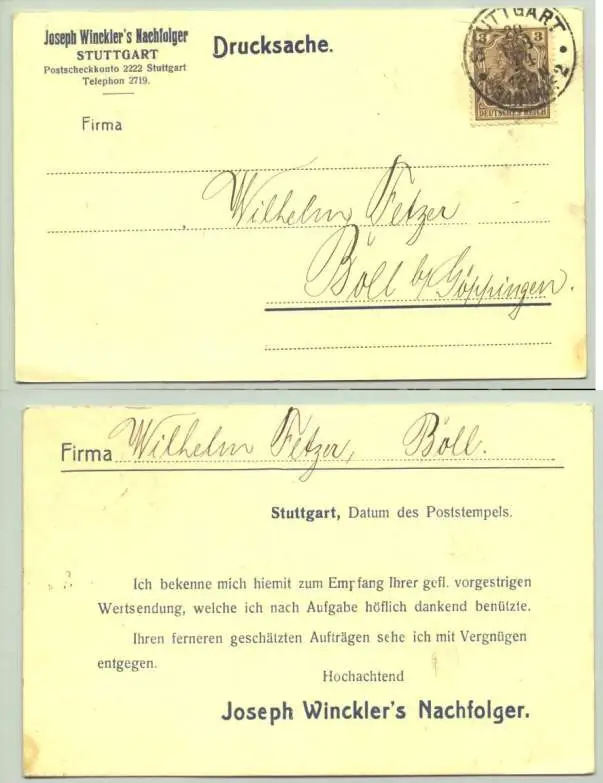 Joseph Winckler's Nachfolger
STUTTGART
Postscheckkonto 2222 Stuttgart
Telephon 2719.
Drucksache.
STUTTGART
3 3
DEUTSCHES REICH
Firma
Wilhelm Fetzer
Böll b/Göppingen.
Firma Wilhelm Fetzer, Böll.
Stuttgart, Datum des Poststempels.
Ich bekenne mich hiemit zum Empfang Ihrer gefl. vorgestrigen
Wertsendung, welche ich nach Aufgabe höflich dankend benützte.
Ihren ferneren geschätzten Aufträgen sehe ich mit Vergnügen
entgegen.
Hochachtend
Joseph Winckler's Nachfolger.